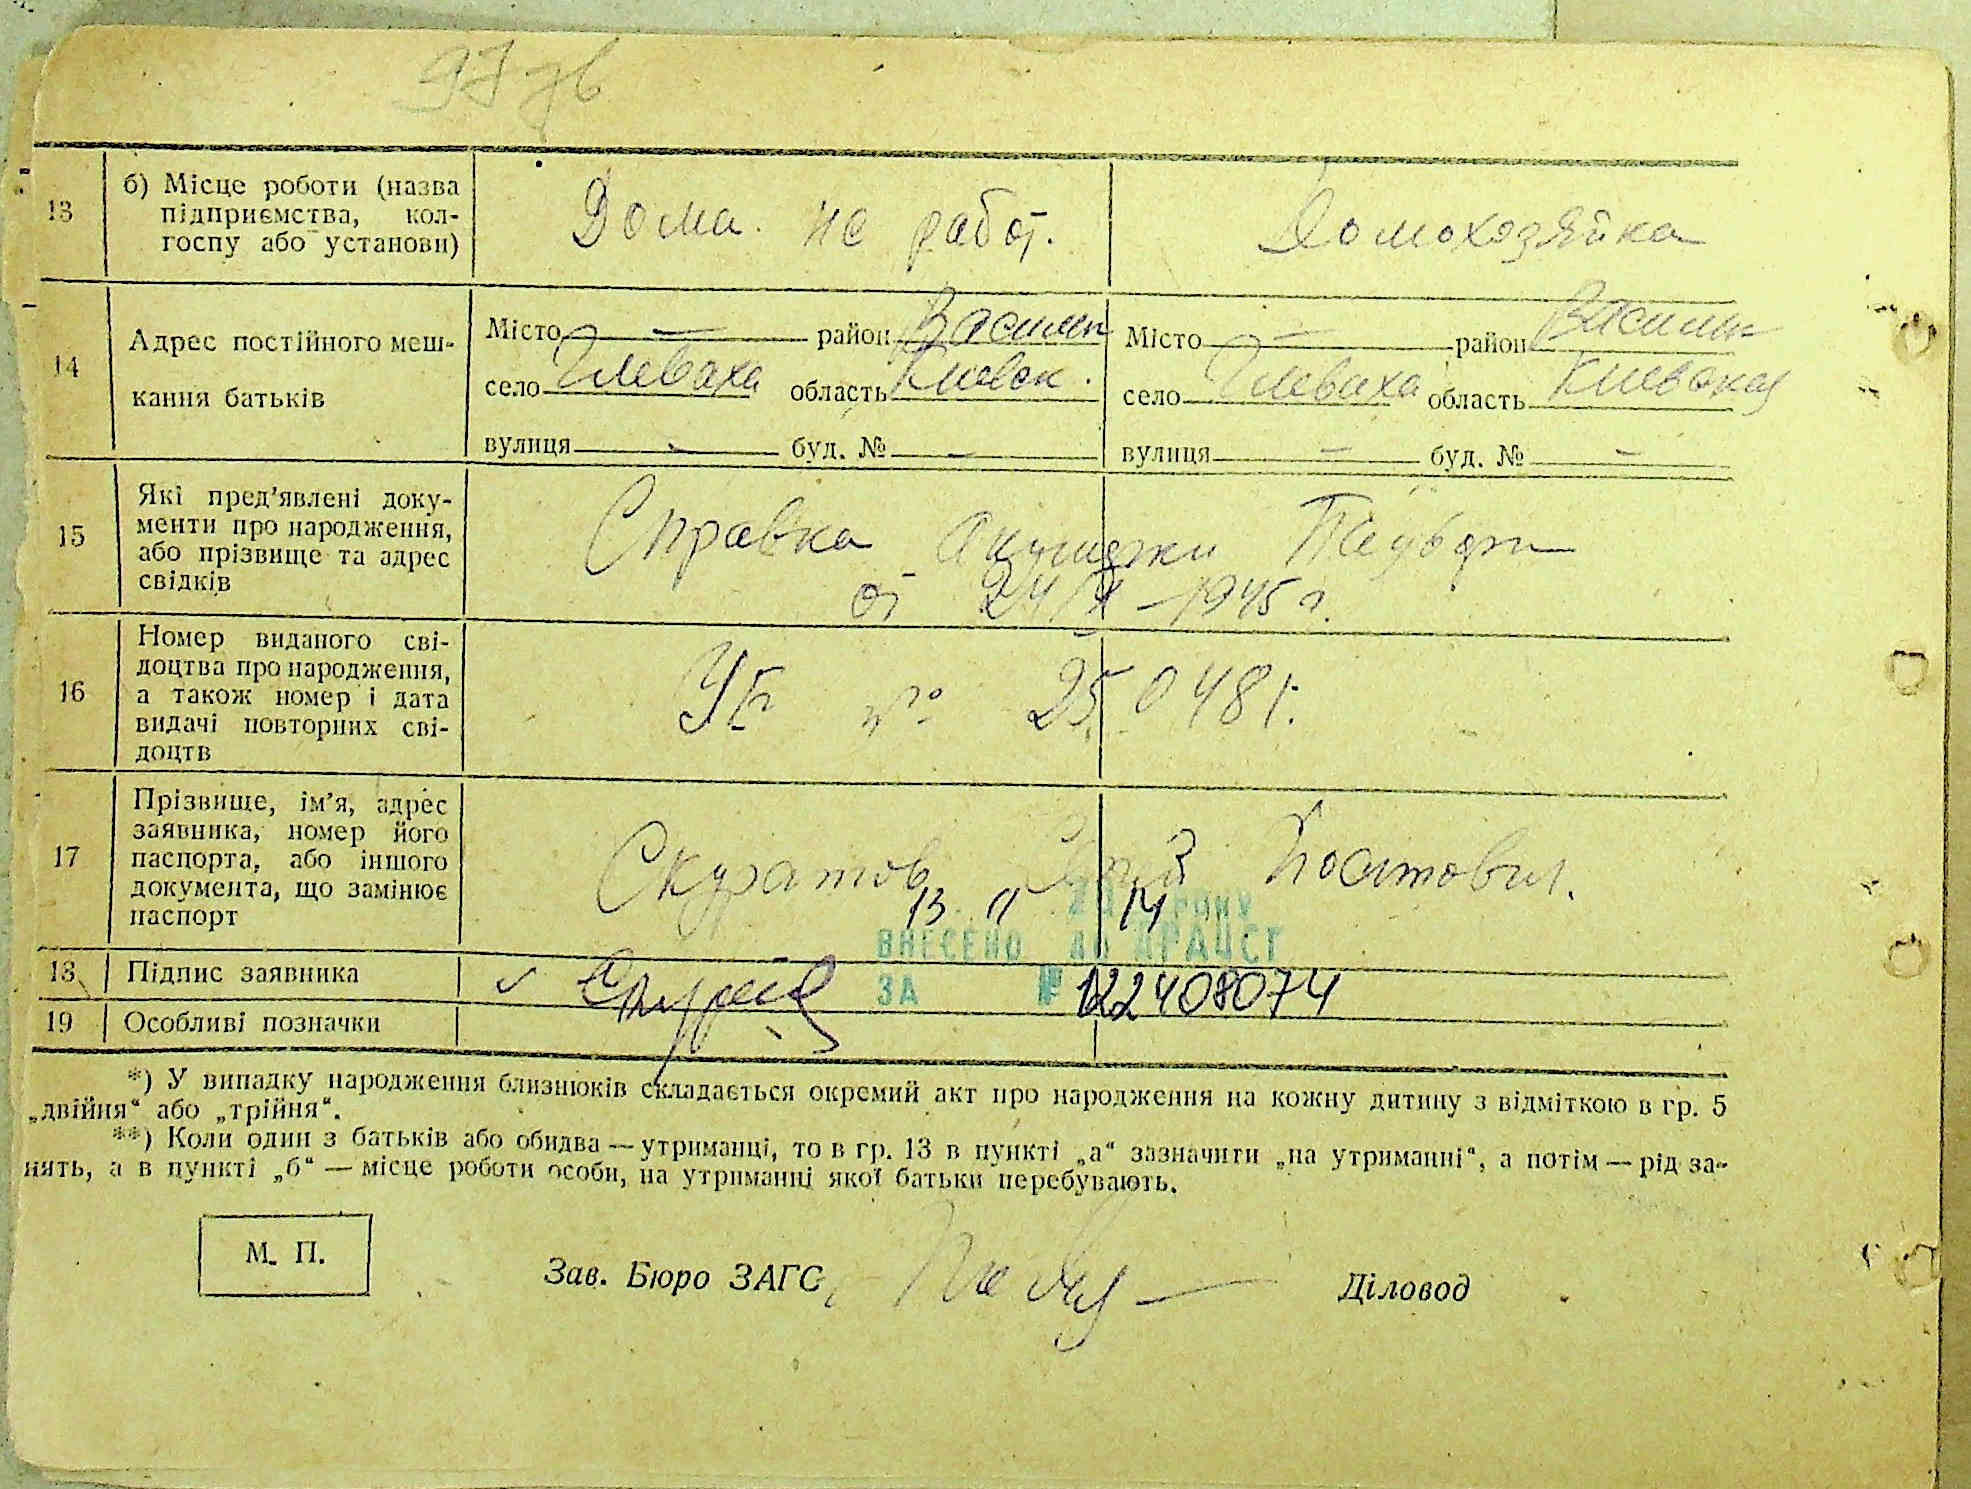 97 зв
13 б) Місце роботи (назва
підприємства, кол-
госпу або установи) Дома. не работ. Домохозяйка
14 Адрес постійного меш-
кання батьків
Місто — район Васильк Місто — район Васильк
село Глеваха область Киевск. село Глеваха область Киевская
вулиця - буд. № - вулиця - буд. № -
15 Які пред’явлені доку-
менти про народження,
або прізвище та адрес
свідків
Справка акушерки
от 24/ -1945 г.
16 Номер виданого сві-
доцтва про народження,
а також номер і дата
видачі повторних сві-
доцтв
№ 250481.
17 Прізвище, ім’я, адрес
заявника, номер його
паспорта, або іншого
документа, що замінює
паспорт
Скуратов
13 11 14 РОКУ
ВНЕСЕНО ДО ДРАЦСГ
18 Підпис заявника
ЗА № 122408074
19 Особливі позначки
*) У випадку народження близнюків складається окремий акт про народження на кожну дитину з відміткою в гр. 5
„двійня“ або „трійня“.
**) Коли один з батьків або обидва — утриманці, то в гр. 13 в пункті „а“ зазначити „на утриманні“, а потім — рід за-
нять, а в пункті „б“ — місце роботи особи, на утриманні якої батьки перебувають.
М. П.
Зав. Бюро ЗАГС Діловод